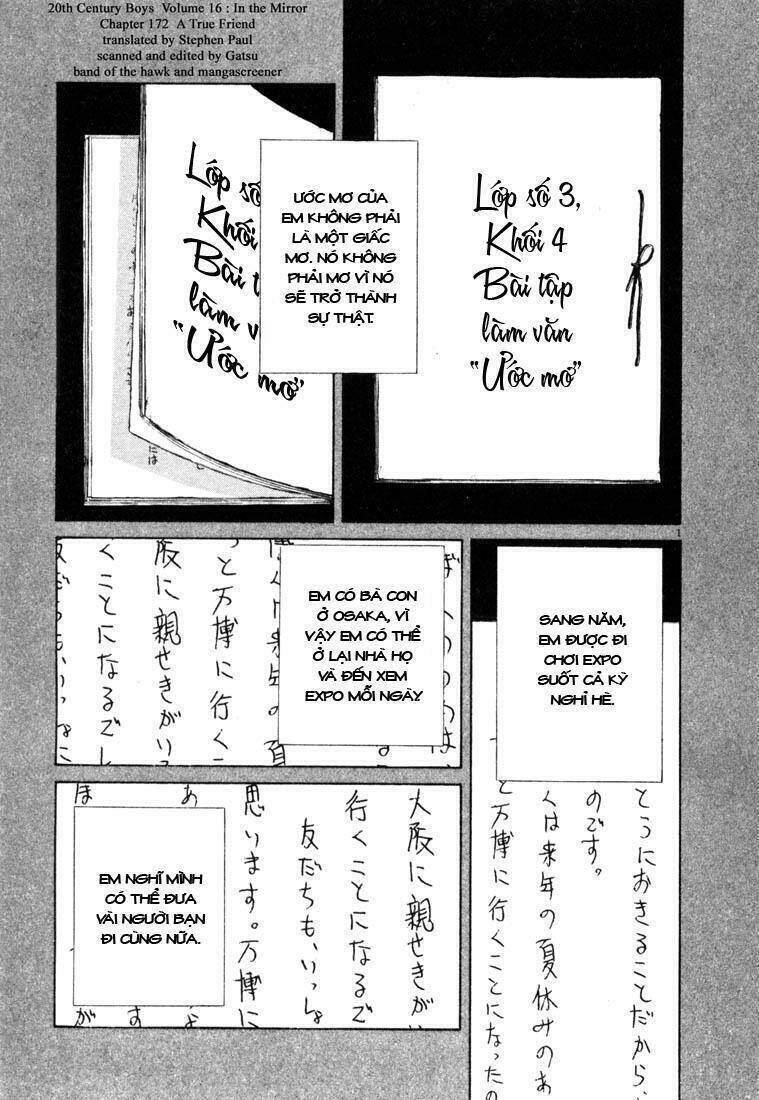 20th Century Boys Volume 16 : In the Mirror
Chapter 172 A True Friend
translated by Stephen Paul
scanned and edited by Gatsu
band of the hawk and mangascreener
Lớp số 3,
Khối 4
Bài tập
làm văn
"Ước mơ"
Lớp số
Khối
Bài
làm v
"Ước mơ"
ƯỚC MƠ CỦA
EM KHÔNG PHẢI
LÀ MỘT GIẤC
MƠ. NÓ KHÔNG
PHẢI MƠ VÌ NÓ
SẼ TRỞ THÀNH
SỰ THẬT.
1
SANG NĂM,
EM ĐƯỢC ĐI
CHƠI EXPO
SUỐT CẢ KỲ
NGHỈ HÈ.
とうにおきることだから、
のです。
くは来年の夏休みのあ
と万博に行くことになったの
EM CÓ BÀ CON
Ở OSAKA, VÌ
VẬY EM CÓ THỂ
Ở LẠI NHÀ HỌ
VÀ ĐẾN XEM
EXPO MỖI NGÀY.
っと万博に行く
阪に親せきがい
くことになるでし
大阪に親せきがい
行くことになるで
友だちも、いっしょ
思います。万博に
EM NGHĨ MÌNH
CÓ THỂ ĐƯA
VÀI NGƯỜI BẠN
ĐI CÙNG NỮA.